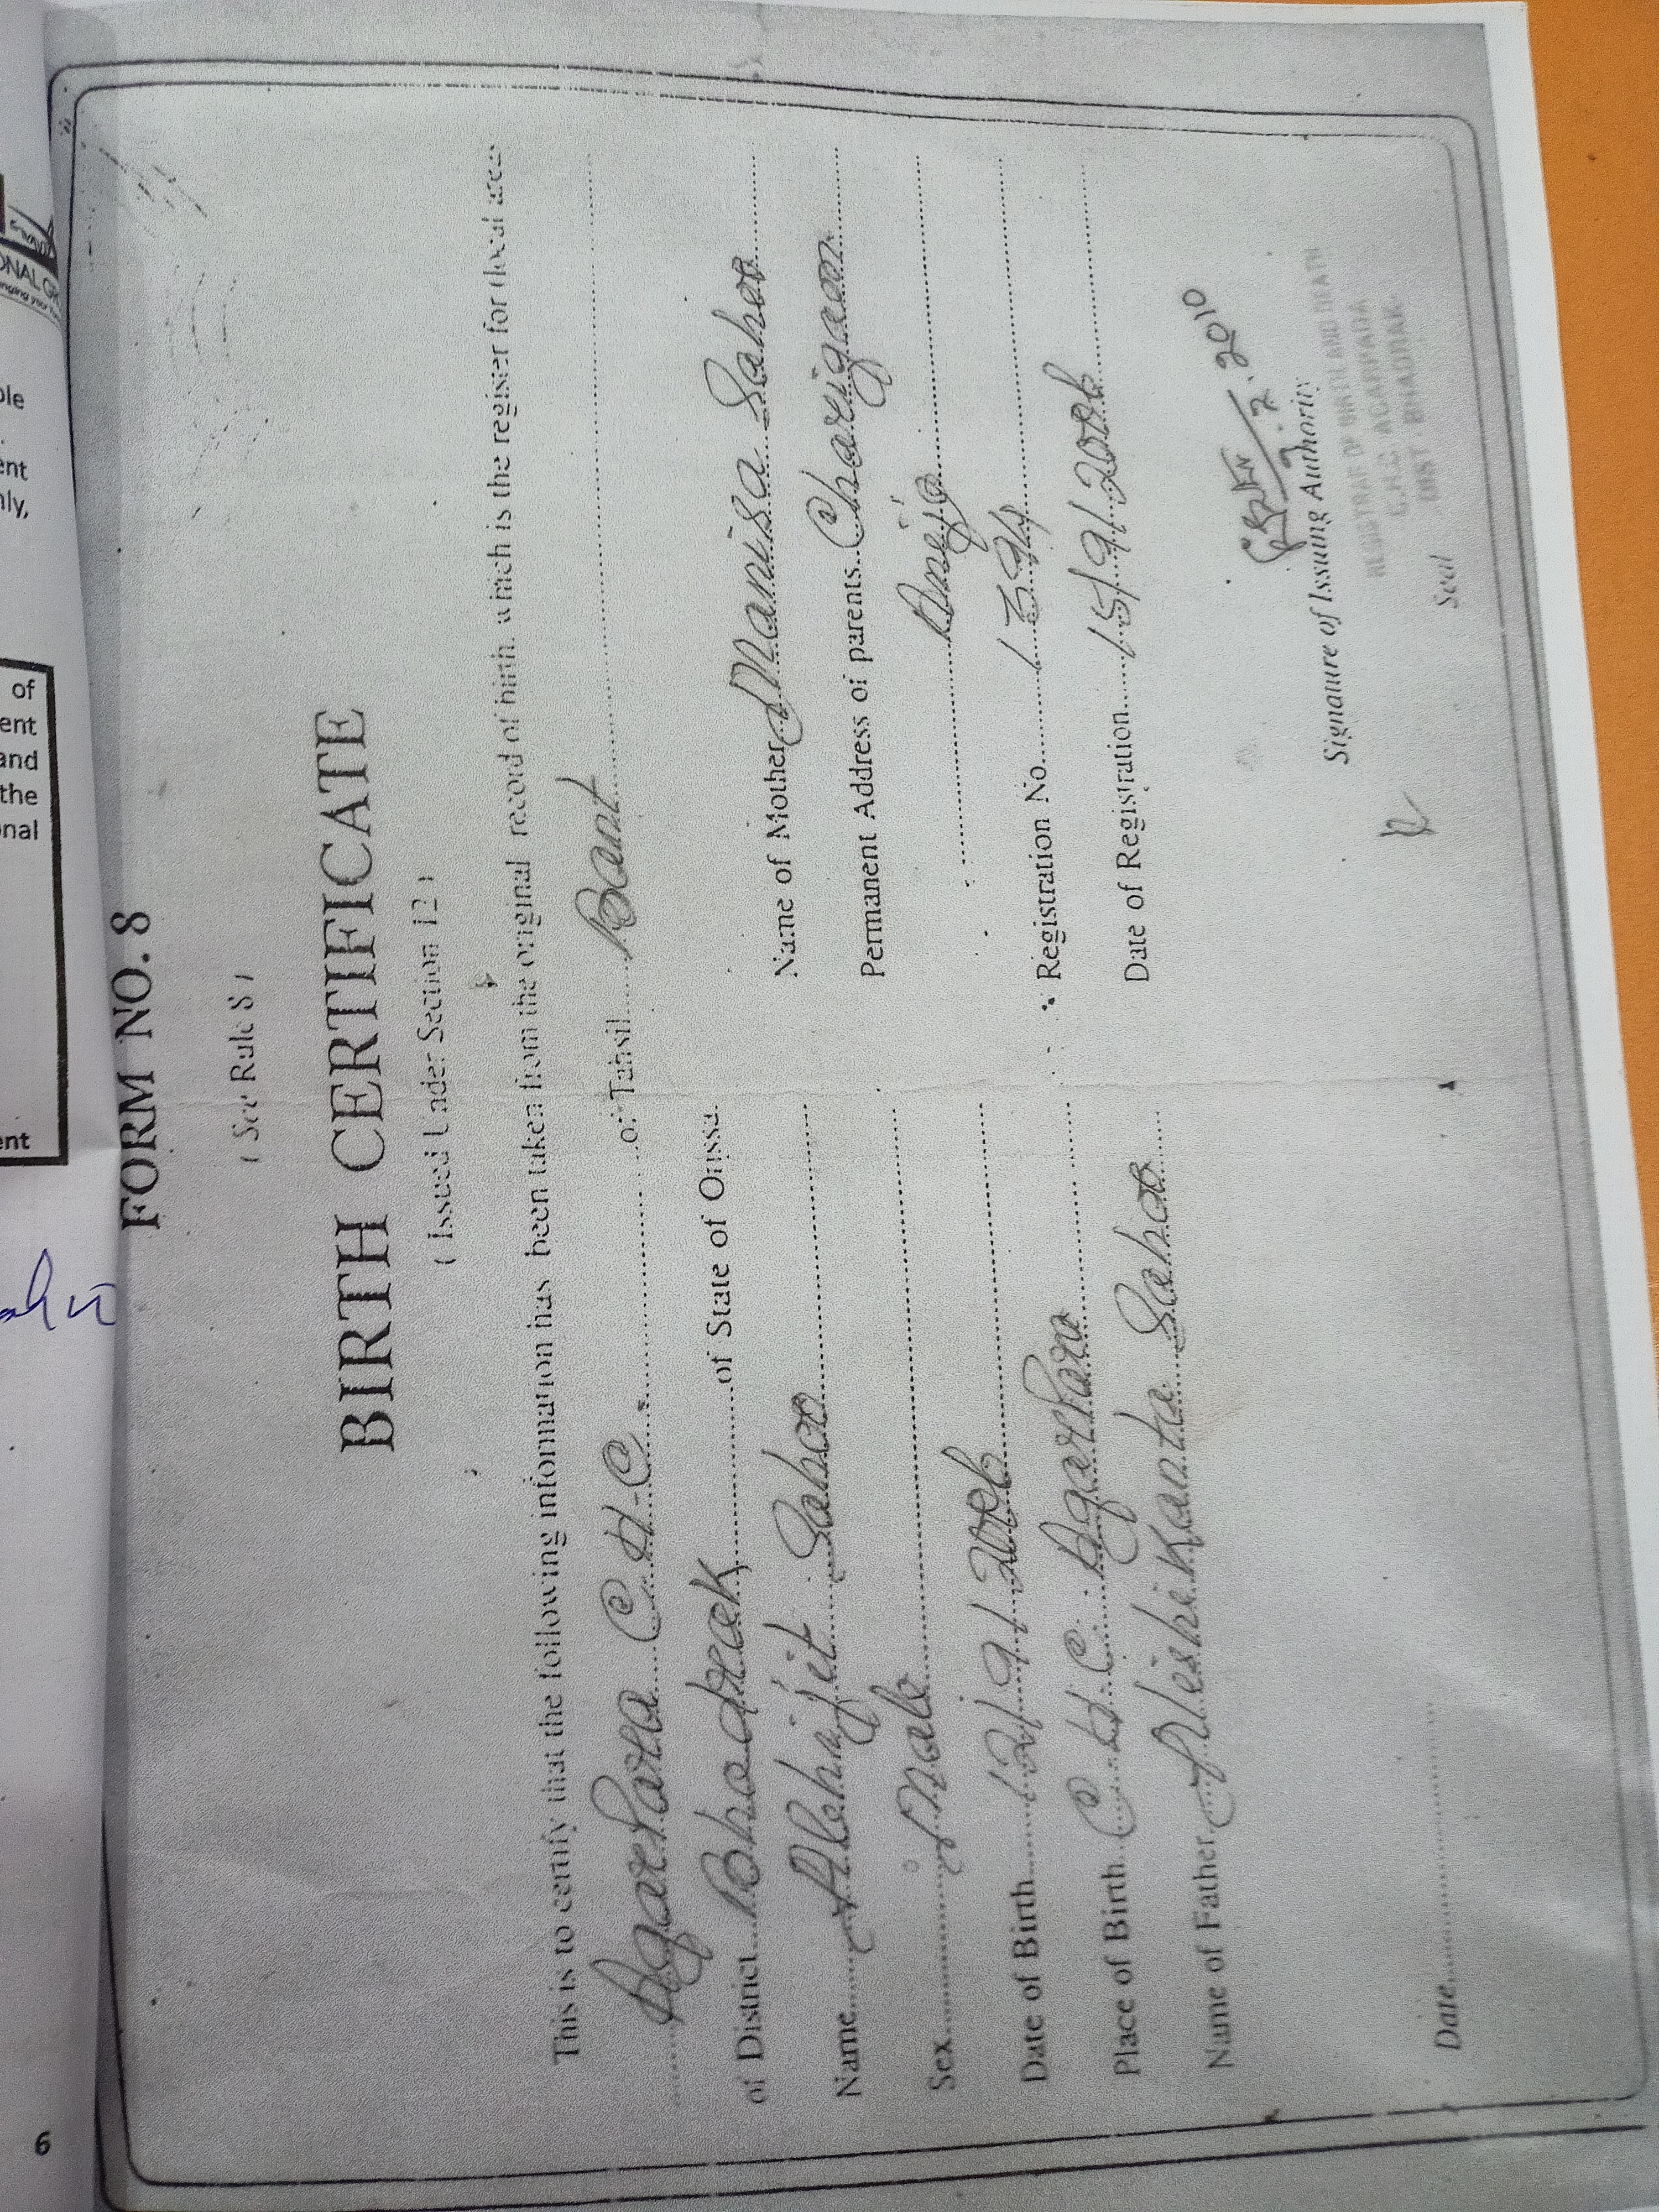 FORM NO. 8
( See Rule 8 )
BIRTH CERTIFICATE
( Issued Under Section 12 )
This is to certify that the following information has been taken from the original record of birth. which is the register for (local area
Agarpara C.H.C. of Tahsil Bant
of District Bhadrak of State of Orissa.
Name Abhijit Sahoo
Sex Male
Date of Birth 12/9/2006
Place of Birth C.H.C. Agarpara
Name of Father Nishikanta Sahoo
Name of Mother Manisa Sahoo
Permanent Address of parents Charigaon
Registration No. 1394
Date of Registration 15/9/2006
2010
Signature of Issuing Authority
REGISTRAR OF BIRTH AND DEATH
C.H.C. AGARPADA
DIST. BHADRAK
Date
Seal
ONAL
nging your
ple
ent
nly,
of
ent
and
the
onal
ent
6